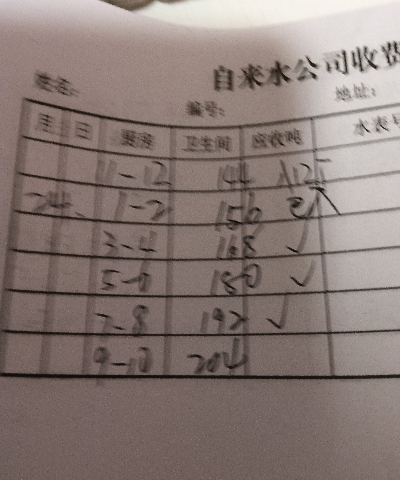 自来水公司收费
姓名: 编号: 地址:
月 日 厨房 卫生间 应收吨 水表号
11-12 144
24. 1-2 156
3-4 168 ✓
5-6 180 ✓
7-8 192 ✓
9-10 204